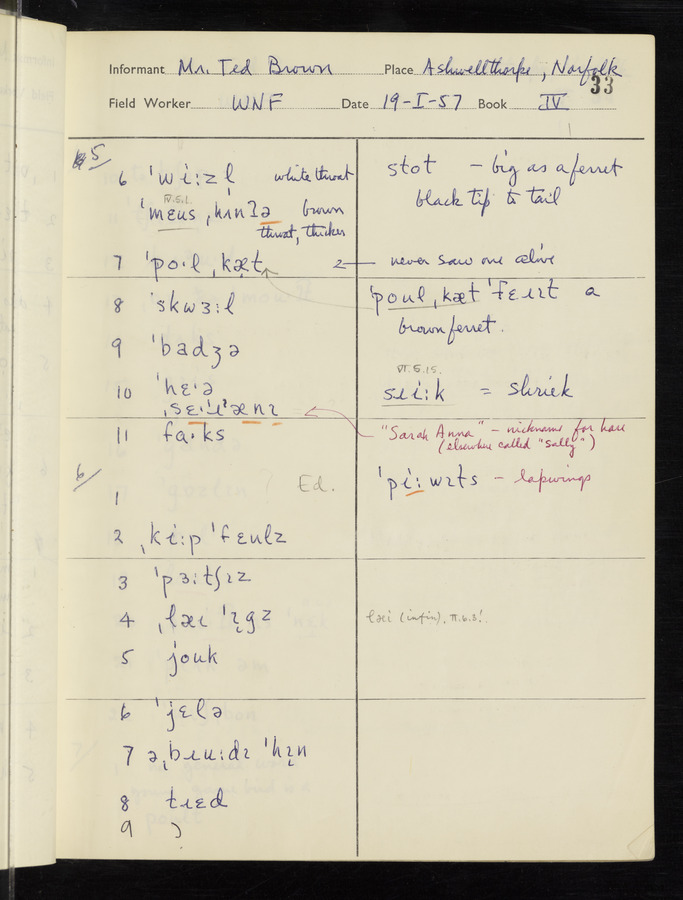 Informant Mr. Ted Brown Place Ashwellthorpe, Norfolk
33
Field Worker WNF Date 19-I-57 Book IV
5/
6 ˈwi:zl white throat
stot – big as a ferret
black tip to tail
IV.5.1.
brown
throat, thicker
7 ˈpo·l ˌkæt
2 — never saw one alive
8 ˈskwɜ:l
ˈpoul ˌkæt ˈfɛɹɪt a
brown ferret.
9 ˈbadʒə
VI.5.15.
10 ˈhɛ·ə
= shriek
11 fɑ·ks
"Sarah Anna" – nickname for hare
(elsewhere called "Sally")
6/
Ed.
ˈpi:wɪts – lapwings
1
2 ˌki:p ˈfɛulz
3 ˈpɜ:tʃɪz
4 ˌlæɪ ˈɪgz
læi (infin), II.6.3!
5 jouk
6 ˈjɛlə
7 ə ˌbɹu:dɪ ˈhɪn
8 tɹɛd
9